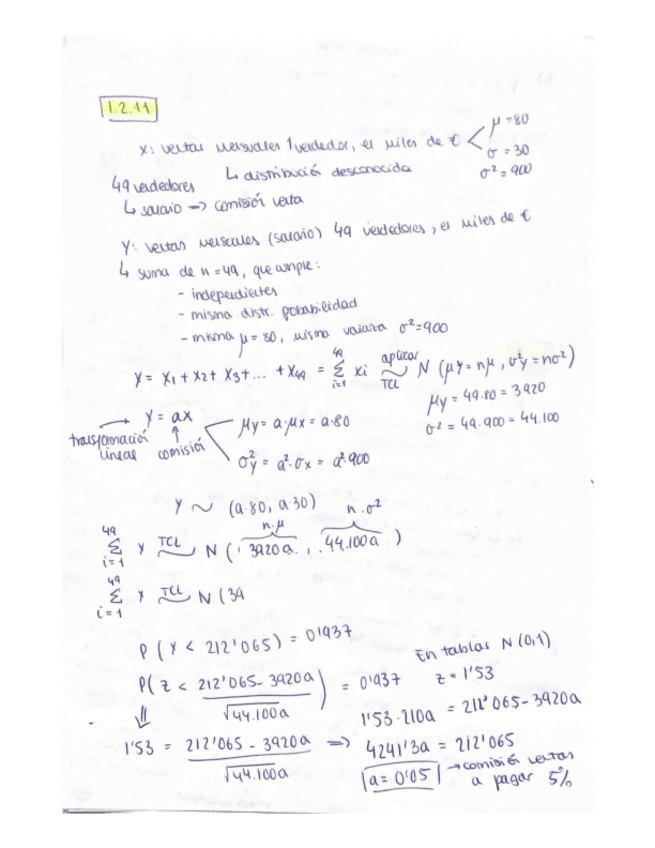 1.2.11
X: ventas mensuales 1 vendedor, en miles de € < μ = 80
σ = 30
σ² = 900
↳ distribución desconocida
49 vendedores
↳ salario => comisión venta
Y: ventas mensuales (salario) 49 vendedores, en miles de €
↳ suma de n = 49, que cumple:
- independientes
- misma distr. probabilidad
- misma μ = 80, misma varianza σ² = 900
Y = X1 + X2 + X3 + ... + X49 = Σ xi (i=1, 49) aplicar TCL ~ N (μy = nμ, σ²y = nσ²)
μy = 49·80 = 3920
σ² = 49·900 = 44.100
Y = ax
transformación lineal
comisión
μy = a·μx = a·80
σ²y = a²·σx = a²·900
Y ~ (a·80, a·30)
n·μ n·σ²
49 Σ i=1 Y TCL ~ N ( 3920a , 44.100a )
49 Σ i=1 Y TCL ~ N (39
P ( Y < 212'065) = 0'937
P( Z < (212'065 - 3920a) / √44.100a ) = 0'937
En tablas N (0,1)
z = 1'53
⇓
1'53 = (212'065 - 3920a) / √44.100a =>
1'53·210a = 212'065 - 3920a
4241'3a = 212'065
a = 0'05 → comisión ventas
a pagar 5%